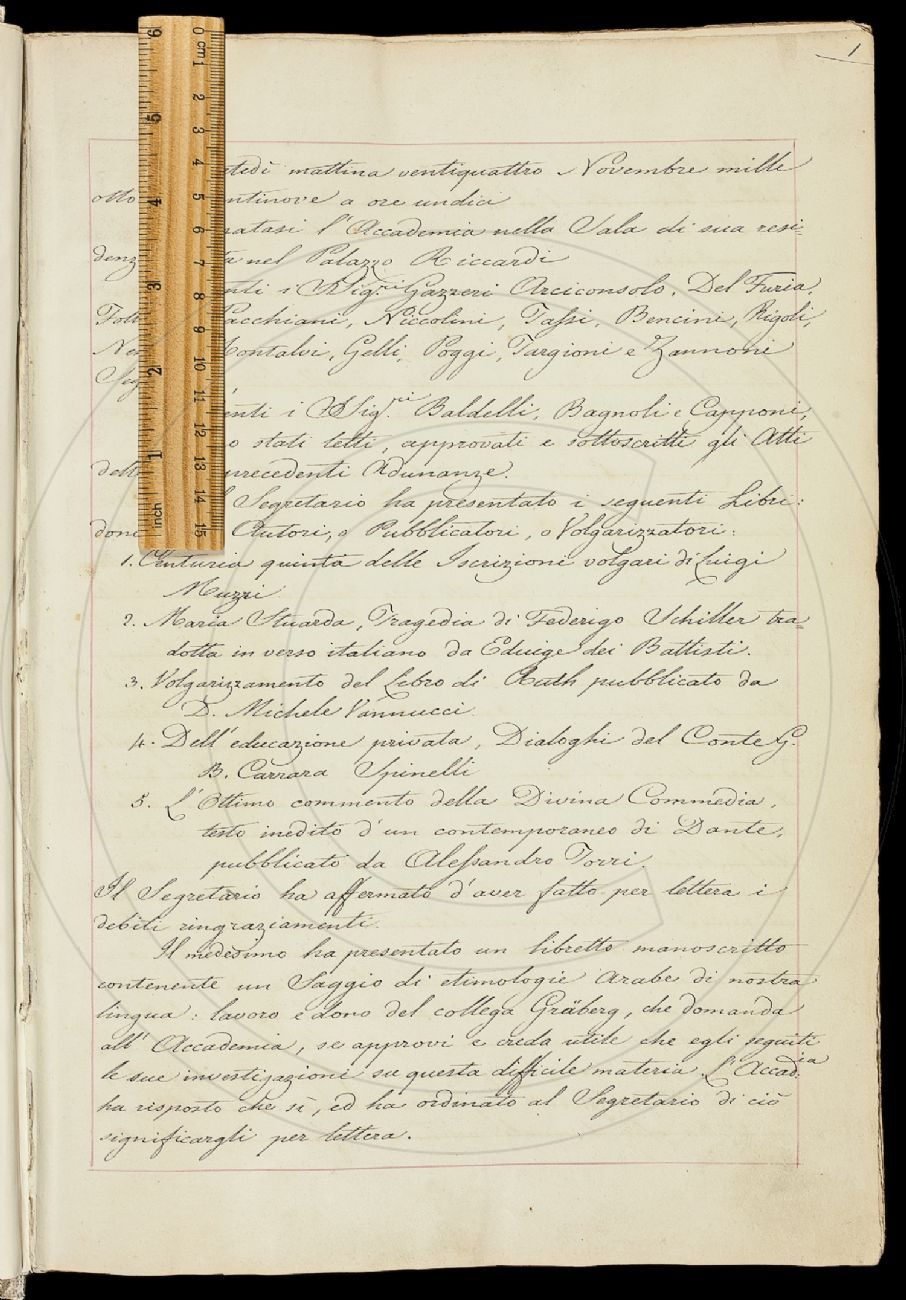 1
mattina ventiquattro Novembre mille
otto ntinove a ore undici
natasi l'Accademia nella Sala di sua resi=
denz a nel Palazzo Riccardi
nti i SSig.ri Gazzeri Arciconsolo, Del Furia,
Follacchiani, Niccolini, Tassi, Bencini, Rigoli,
Montalvi, Gelli, Poggi, Targioni e Zannoni
Seg
nti i SSig.ri Baldelli, Bagnoli e Capponi,
o stati letti, approvati e sottoscritti gli Atti
delle precedenti Adunanze.
Segretario ha presentato i seguenti Libri:
dono Autori, o Pubblicatori, o Volgarizzatori:
1. Centuria quinta delle Iscrizioni volgari di Luigi
Muzzi
2. Maria Stuarda, Tragedia di Federigo Schiller tra=
dotta in verso italiano da Eduige dei Battisti.
3. Volgarizzamento del Libro di Ruth pubblicato da
D. Michele Vannucci
4. Dell'educazione privata, Dialoghi del Conte G.
B. Carrara Spinelli
5. L'Ottimo commento della Divina Commedia,
testo inedito d'un contemporaneo di Dante,
pubblicato da Alessandro Torri.
Il Segretario ha affermato d'aver fatto per lettera i
debiti ringraziamenti.
Il medesimo ha presentato un libretto manoscritto
contenente un Saggio di etimologie Arabe di nostra
lingua: lavoro e dono del collega Gräberg, che domanda
all'Accademia, se approvi e creda utile che egli seguiti
le sue investigazioni su questa difficile materia. L'Accad.ia
ha risposto che sì, ed ha ordinato al Segretario di ciò
significargli per lettera.
0 cm 1 2 3 4 5 6 7 8 9 10 11 12 13 14 15
inch 1 2 3 4 5 6